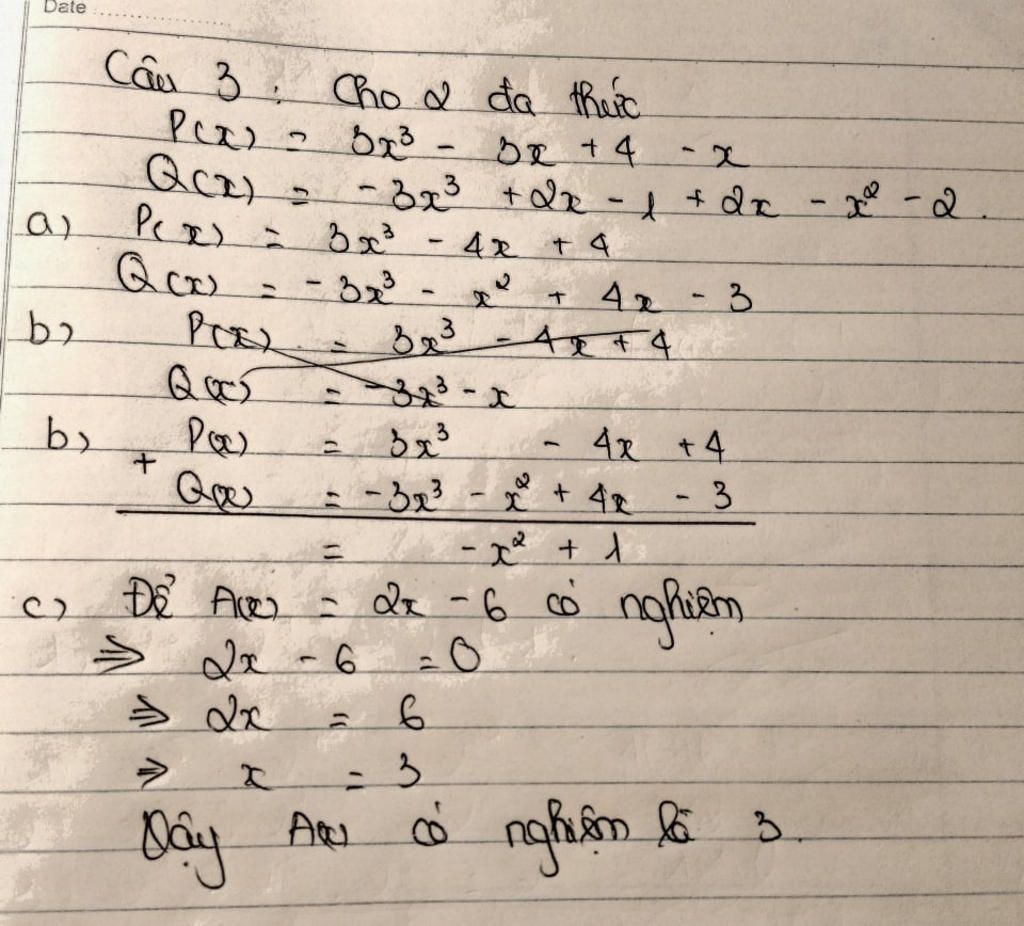 Date
Câu 3 : Cho 2 đa thức
P(x) = 3x³ - 3x + 4 - x
Q(x) = -3x³ + 2x - 1 + 2x - x² - 2.
a) P(x) = 3x³ - 4x + 4
Q(x) = -3x³ - x² + 4x - 3
b) P(x) = 3x³ - 4x + 4
Q(x) = -3x³ - x
b) P(x) = 3x³ - 4x + 4
+
Q(x) = -3x³ - x² + 4x - 3
= -x² + 1
c) Để A(x) = 2x - 6 có nghiệm
⇒ 2x - 6 = 0
⇒ 2x = 6
⇒ x = 3
Vậy A(x) có nghiệm là 3.